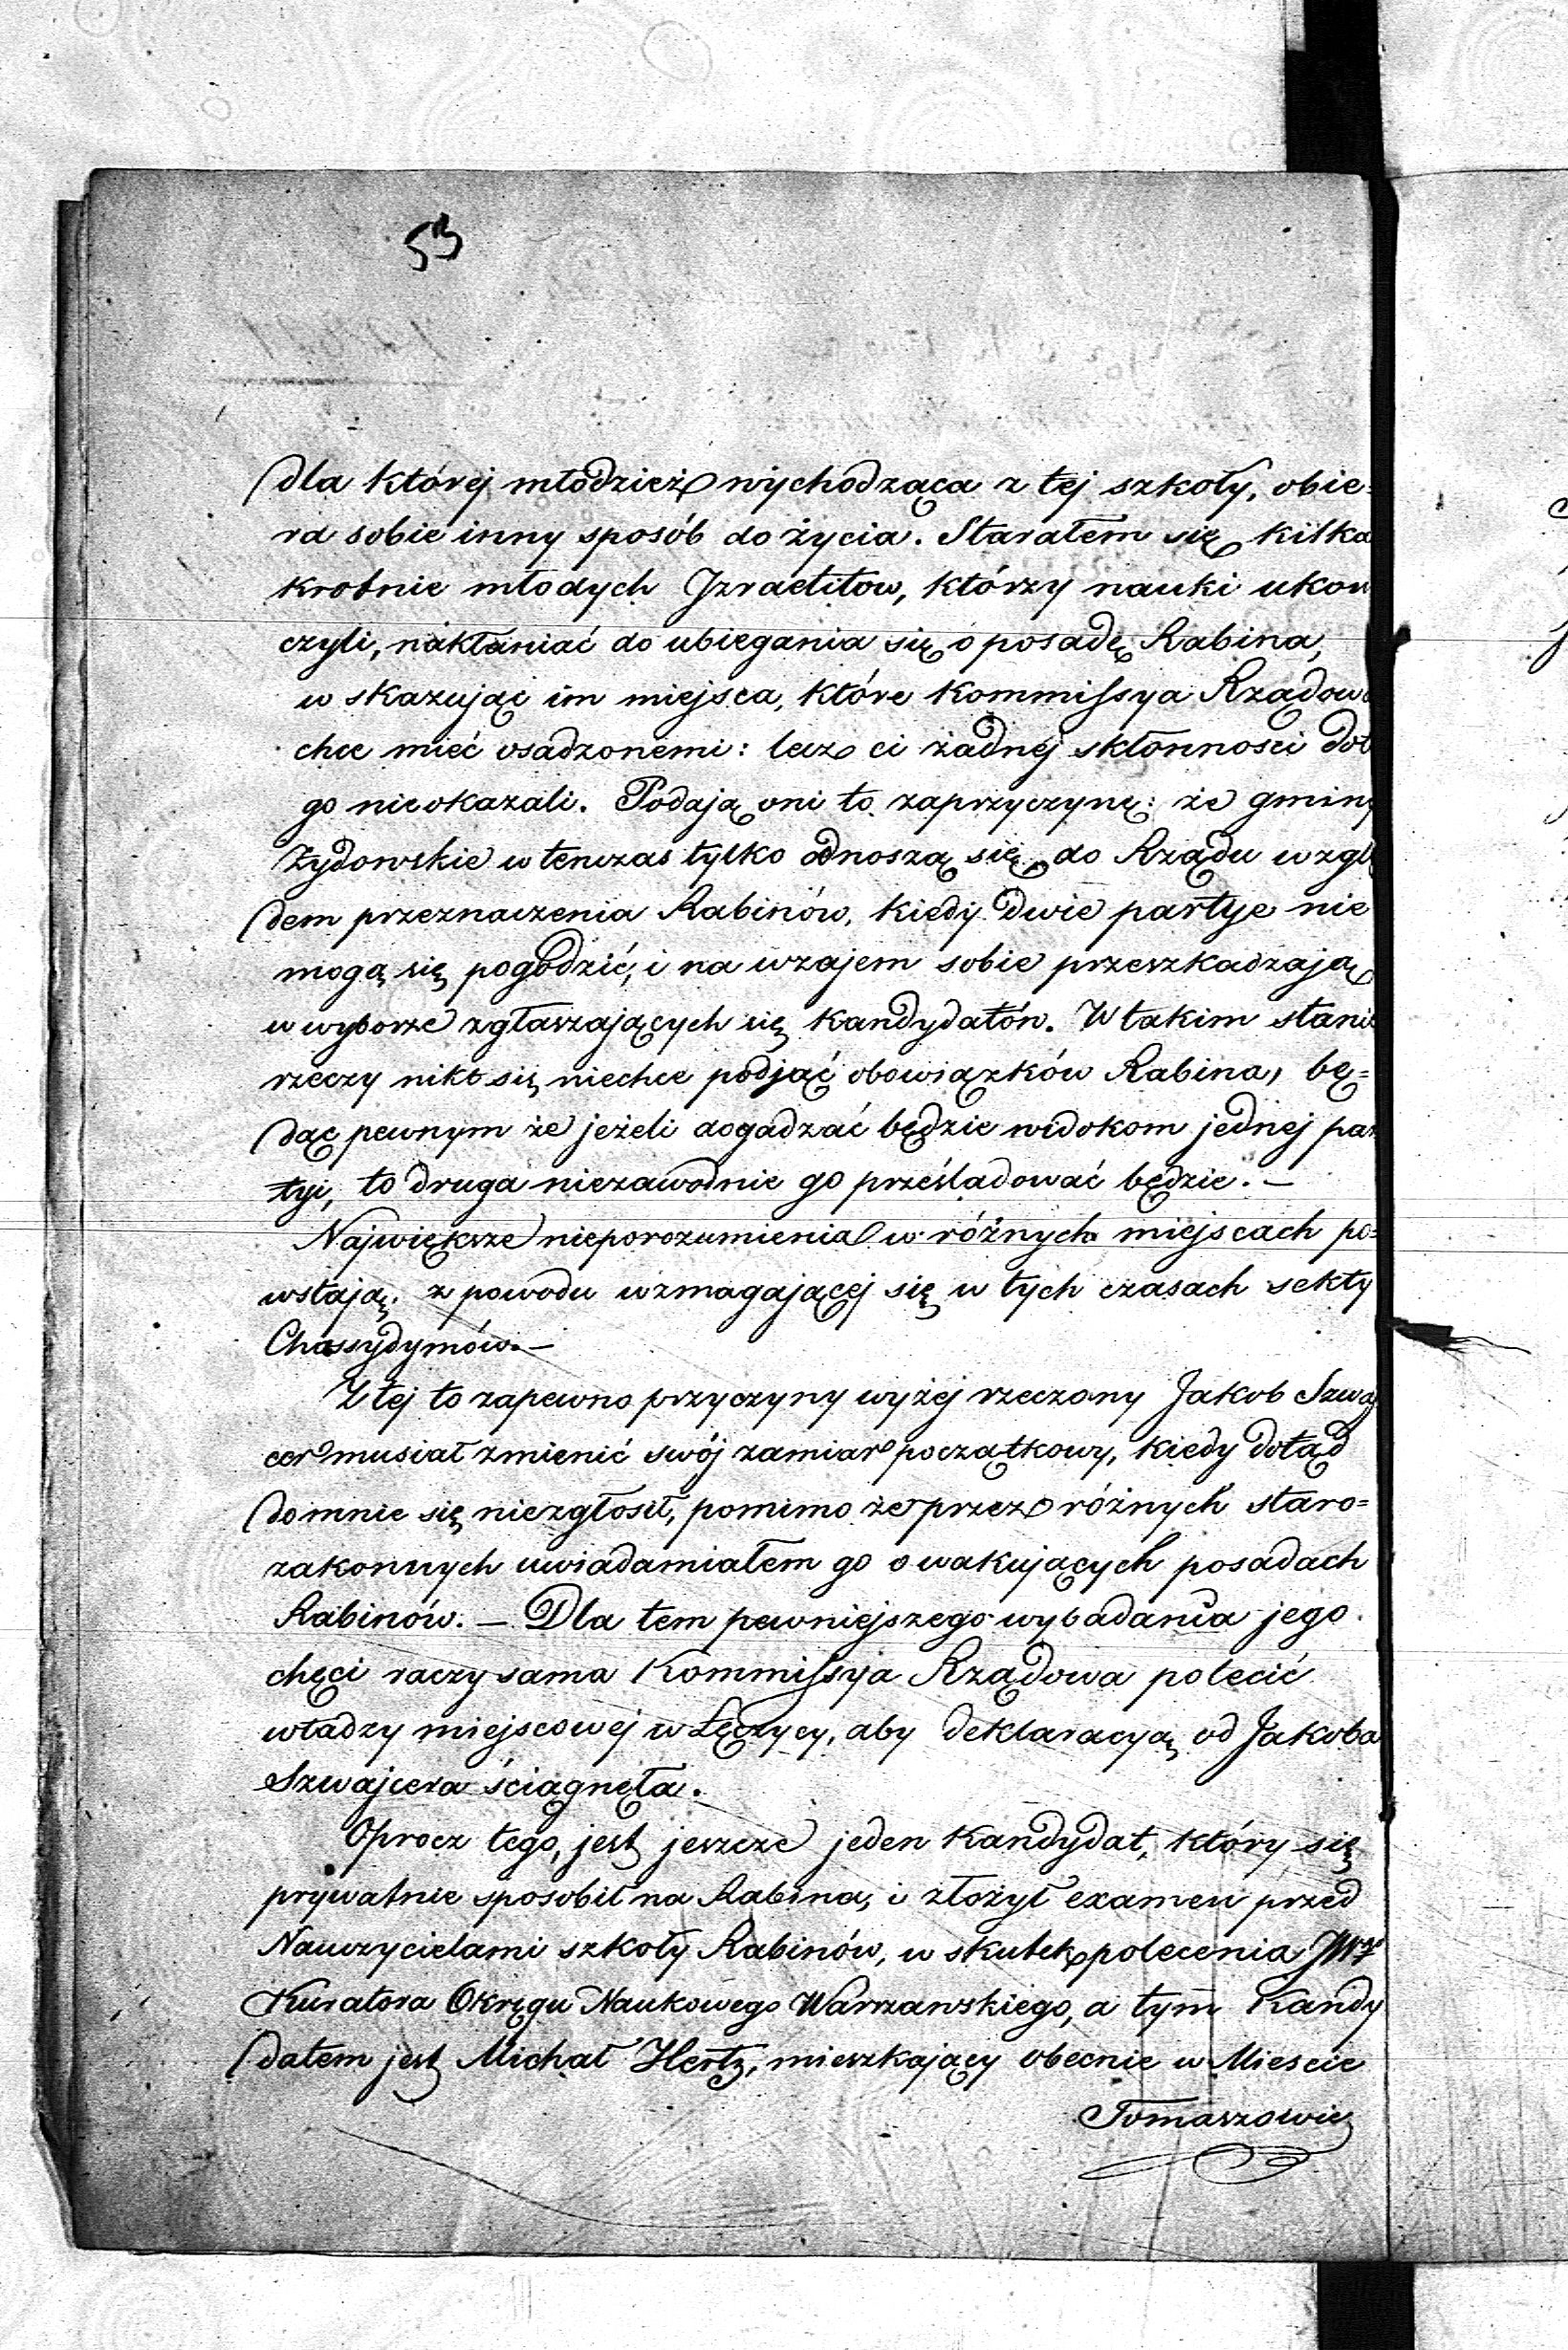 53
dla której młodzież wychodząca z tej szkoły, obie=
ra sobie inny sposób do życia. Starałem się kilka
krotnie młodych Izraelitow, którzy nauki ukoń
czyli, nakłaniać do ubiegania się o posadę Rabina,
wskazując im miejsca, które Kommissya Rządowa
chce mieć osadzonemi: lecz ci żadnej skłonnosci do te
go nieokazali. Podają oni to zaprzyczynę: że gminy
Żydowskie wtenczas tylko odnoszą się do Rządu wzglę
dem przeznaczenia Rabinów, kiedy dwie partye nie
mogą się pogodzić, i na wzajem sobie przeszkadzają
w wyborze zgłaszających się kandydatów. W takim stanie
rzeczy nikt się niechce podjąć obowiązków Rabina, bę=
dąc pewnym że jeżeli dogadzać będzie widokom jednej par
tyi, to druga niezawodnie go prześladować będzie. —
Największe nieporozumienia w różnych miejscach po=
wstają, z powodu wzmagającej się w tych czasach sekty
Chassydymów. —
Z tej to zapewno przyczyny wyżej rzeczony Jakob Szwaj
cer musiał zmienić swój zamiar początkowy, kiedy dotąd
domnie się niezgłosił, pomimo że przez różnych staro=
zakonnych uwiadamiałem go o wakujących posadach
Rabinów. — Dla tem pewniejszego wybadania jego
chęci raczy sama Kommissya Rządowa polecić
władzy miejscowej w Łęczycy, aby deklaracyą od Jakoba
Szwajcera ściągnęła.
Oprocz tego, jest jeszcze jeden Kandydat, który się
prywatnie sposobił na Rabina, i złożył examen przed
Nauczycielami szkoły Rabinów, w skutek polecenia JW°
Kuratora Okręgu Naukowego Warszawskiego, a tym Kandy
datem jest Michał Hertz, mieszkający obecnie w Miescie
Tomaszowie